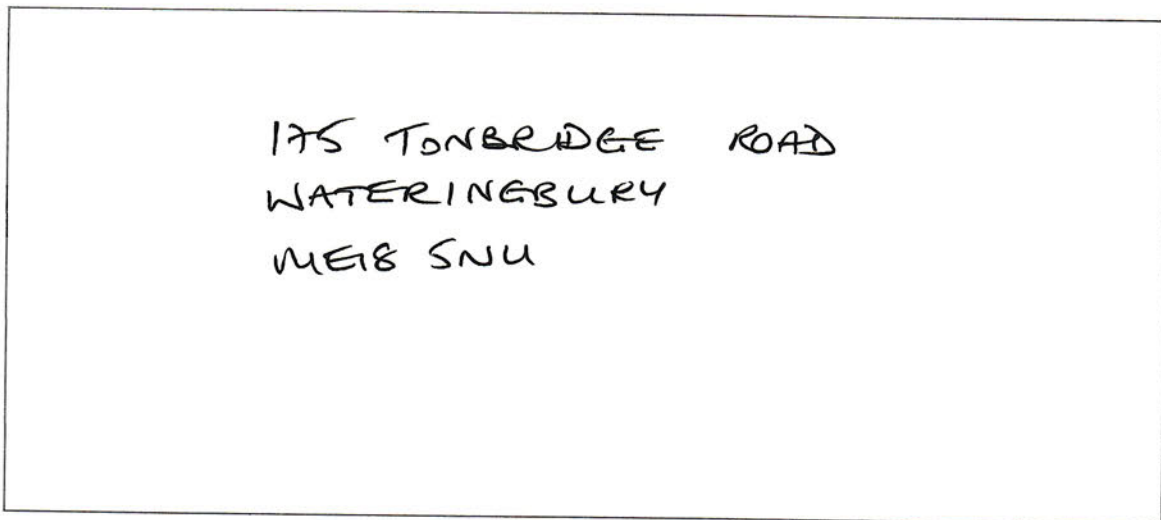 175 TONBRIDGE ROAD
WATERINGBURY
ME18 5NU